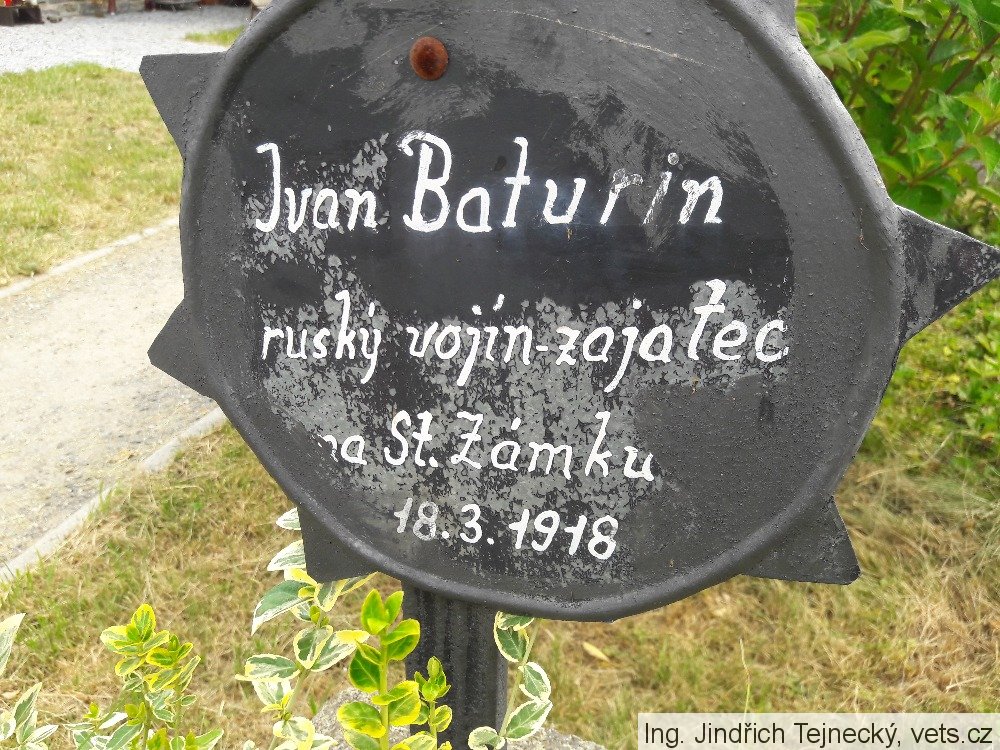 Ivan Baturin
ruský vojín-zajatec
na St. Zámku
18.3.1918
Ing. Jindřich Tejnecký, vets.cz